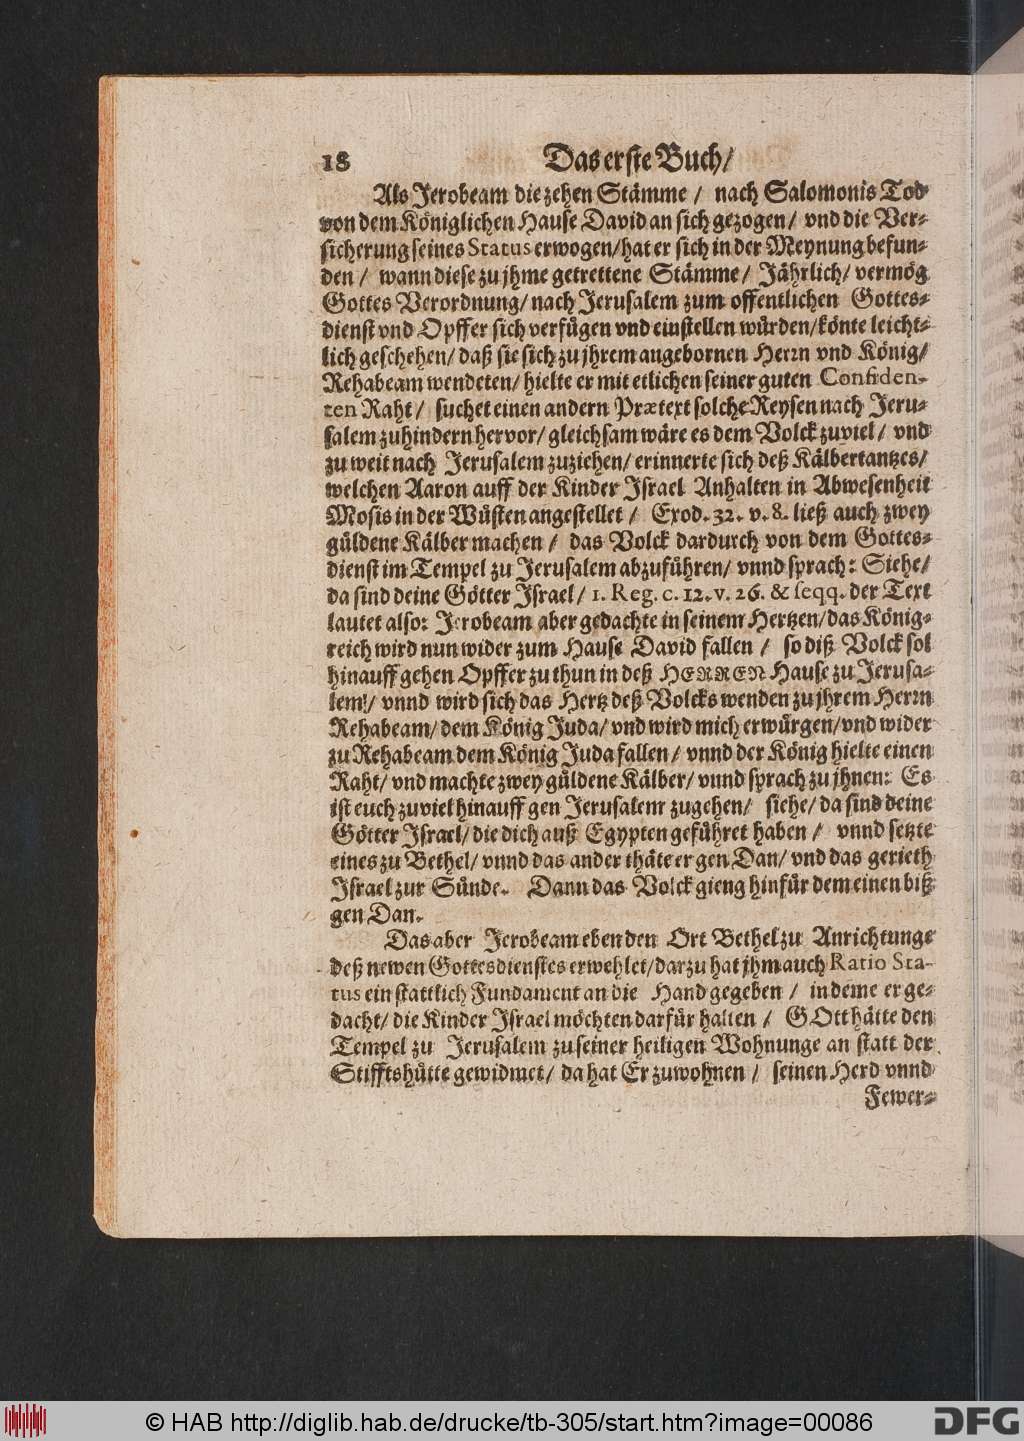 18 Das erste Buch/
Als Jerobeam die zehen Stämme / nach Salomonis Tod
von dem Königlichen Hause David an sich gezogen / vnd die Ver-
sicherung seines Status erwogen / hat er sich in der Meynung befun-
den / wann diese zu jhme getrettene Stämme / Jährlich / vermög
Gottes Verordnung / nach Jerusalem zum offentlichen Gottes-
dienst vnd Opffer sich verfügen vnd einstellen würden / könte leicht-
lich geschehen / daß sie sich zu jhrem angebornen Herrn vnd König /
Rehabeam wendeten / hielte er mit etlichen seiner guten Confiden-
ten Raht / suchet einen andern Prætext solche Reysen nach Jeru-
salem zuhindern hervor / gleichsam wäre es dem Volck zuviel / vnd
zu weit nach Jerusalem zuziehen / erinnerte sich deß Kälbertantzes /
welchen Aaron auff der Kinder Israel Anhalten in Abwesenheit
Mosis in der Wüsten angestellet / Exod. 32. v. 8. ließ auch zwey
güldene Kälber machen / das Volck dardurch von dem Gottes-
dienst im Tempel zu Jerusalem abzuführen / vnnd sprach: Siehe /
da sind deine Götter Israel / 1. Reg. c. 12. v. 26. & seqq. der Text
lautet also: Jerobeam aber gedachte in seinem Hertzen / das König-
reich wird nun wider zum Hause David fallen / so diß Volck sol
hinauff gehen Opffer zu thun in deß HERREN Hause zu Jerusa-
lem!/ vnnd wird sich das Hertz deß Volcks wenden zu jhrem Herrn
Rehabeam / dem König Juda / vnd wird mich erwürgen / vnd wider
zu Rehabeam dem König Juda fallen / vnnd der König hielte einen
Raht / vnd machte zwey güldene Kälber / vnnd sprach zu jhnen: Es
ist euch zuviel hinauff gen Jerusalem zugehen / siehe / da sind deine
Götter Israel / die dich auß Egypten geführet haben / vnnd setzte
eines zu Bethel / vnnd das ander thäte er gen Dan / vnd das gerieth
Israel zur Sünde. Dann das Volck gieng hin für dem einen biß
gen Dan.
Das aber Jerobeam eben den Ort Bethel zu Anrichtunge
deß newen Gottesdienstes erwehlet / darzu hat jhm auch Ratio Sta-
tus ein stattlich Fundament an die Hand gegeben / in deme er ge-
dacht / die Kinder Israel möchten darfür halten / GOtt hätte den
Tempel zu Jerusalem zu seiner heiligen Wohnunge an statt der
Stifftshütte gewidmet / da hat Er zuwohnen / seinen Herd vnnd
Fewer-
© HAB http://diglib.hab.de/drucke/tb-305/start.htm?image=00086
DFG